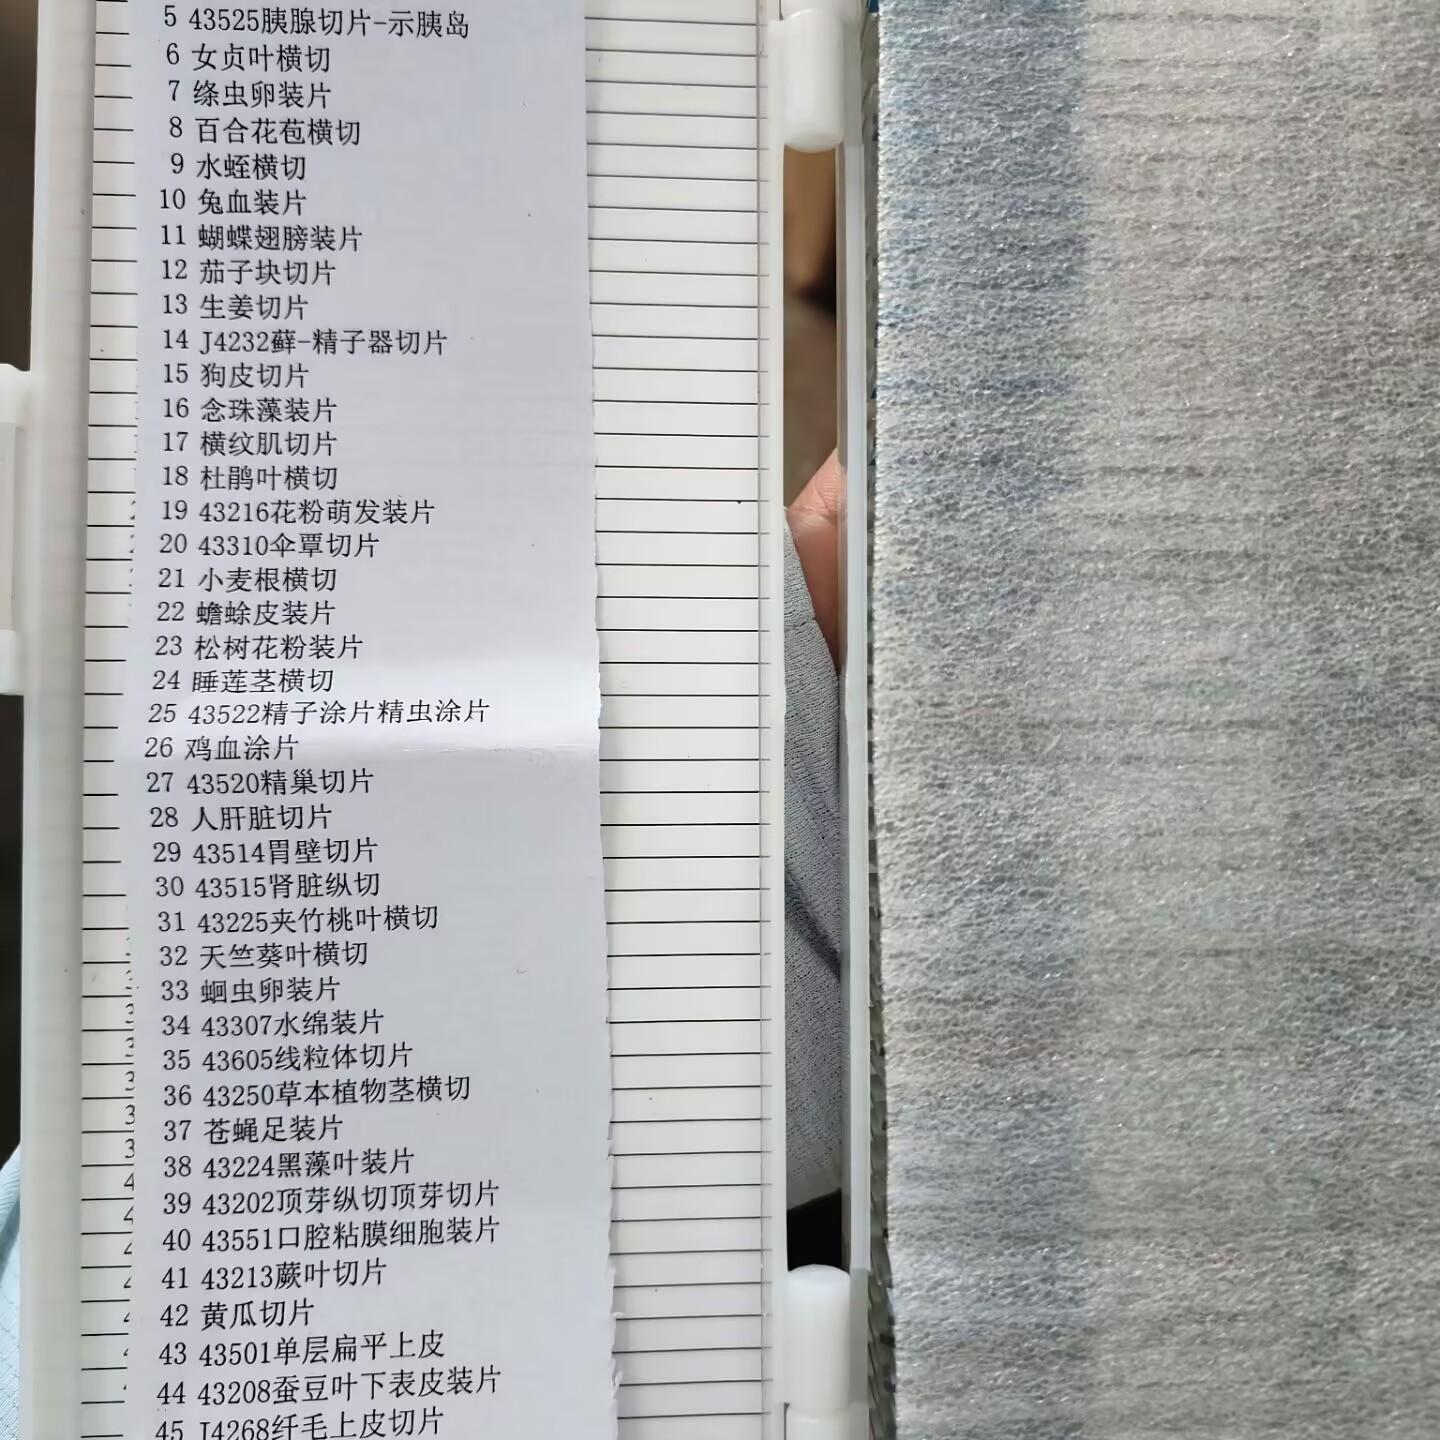 5 43525胰腺切片-示胰岛
6 女贞叶横切
7 绦虫卵装片
8 百合花苞横切
9 水蛭横切
10 兔血装片
11 蝴蝶翅膀装片
12 茄子块切片
13 生姜切片
14 J4232藓-精子器切片
15 狗皮切片
16 念珠藻装片
17 横纹肌切片
18 杜鹃叶横切
19 43216花粉萌发装片
20 43310伞覃切片
21 小麦根横切
22 蟾蜍皮装片
23 松树花粉装片
24 睡莲茎横切
25 43522精子涂片精虫涂片
26 鸡血涂片
27 43520精巢切片
28 人肝脏切片
29 43514胃壁切片
30 43515肾脏纵切
31 43225夹竹桃叶横切
32 天竺葵叶横切
33 蛔虫卵装片
34 43307水绵装片
35 43605线粒体切片
36 43250草本植物茎横切
37 苍蝇足装片
38 43224黑藻叶装片
39 43202顶芽纵切顶芽切片
40 43551口腔粘膜细胞装片
41 43213蕨叶切片
42 黄瓜切片
43 43501单层扁平上皮
44 43208蚕豆叶下表皮装片
45 J4268纤毛上皮切片